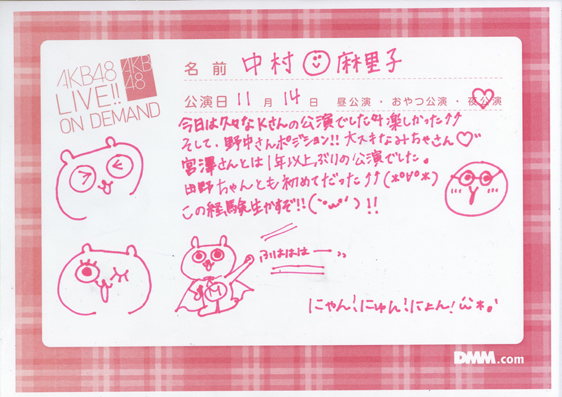 AKB48
LIVE!!
ON DEMAND
AKB
48
名前 中村 麻里子
公演日 11月14日 昼公演・おやつ公演・夜公演
今日は久々なKさんの公演でした!! 楽しかった↑↑
そして、野中さんポジション!! 大スキなみちゃさん♡
宮澤さんとは1年以上ぶりの公演でした。
田野ちゃんとも初めてだった↑↑(*°∀°*)
この経験生かすぞ!!(`・ω・´)!!
ふはははー
にゃん!にゅん!にょん!
DMM.com